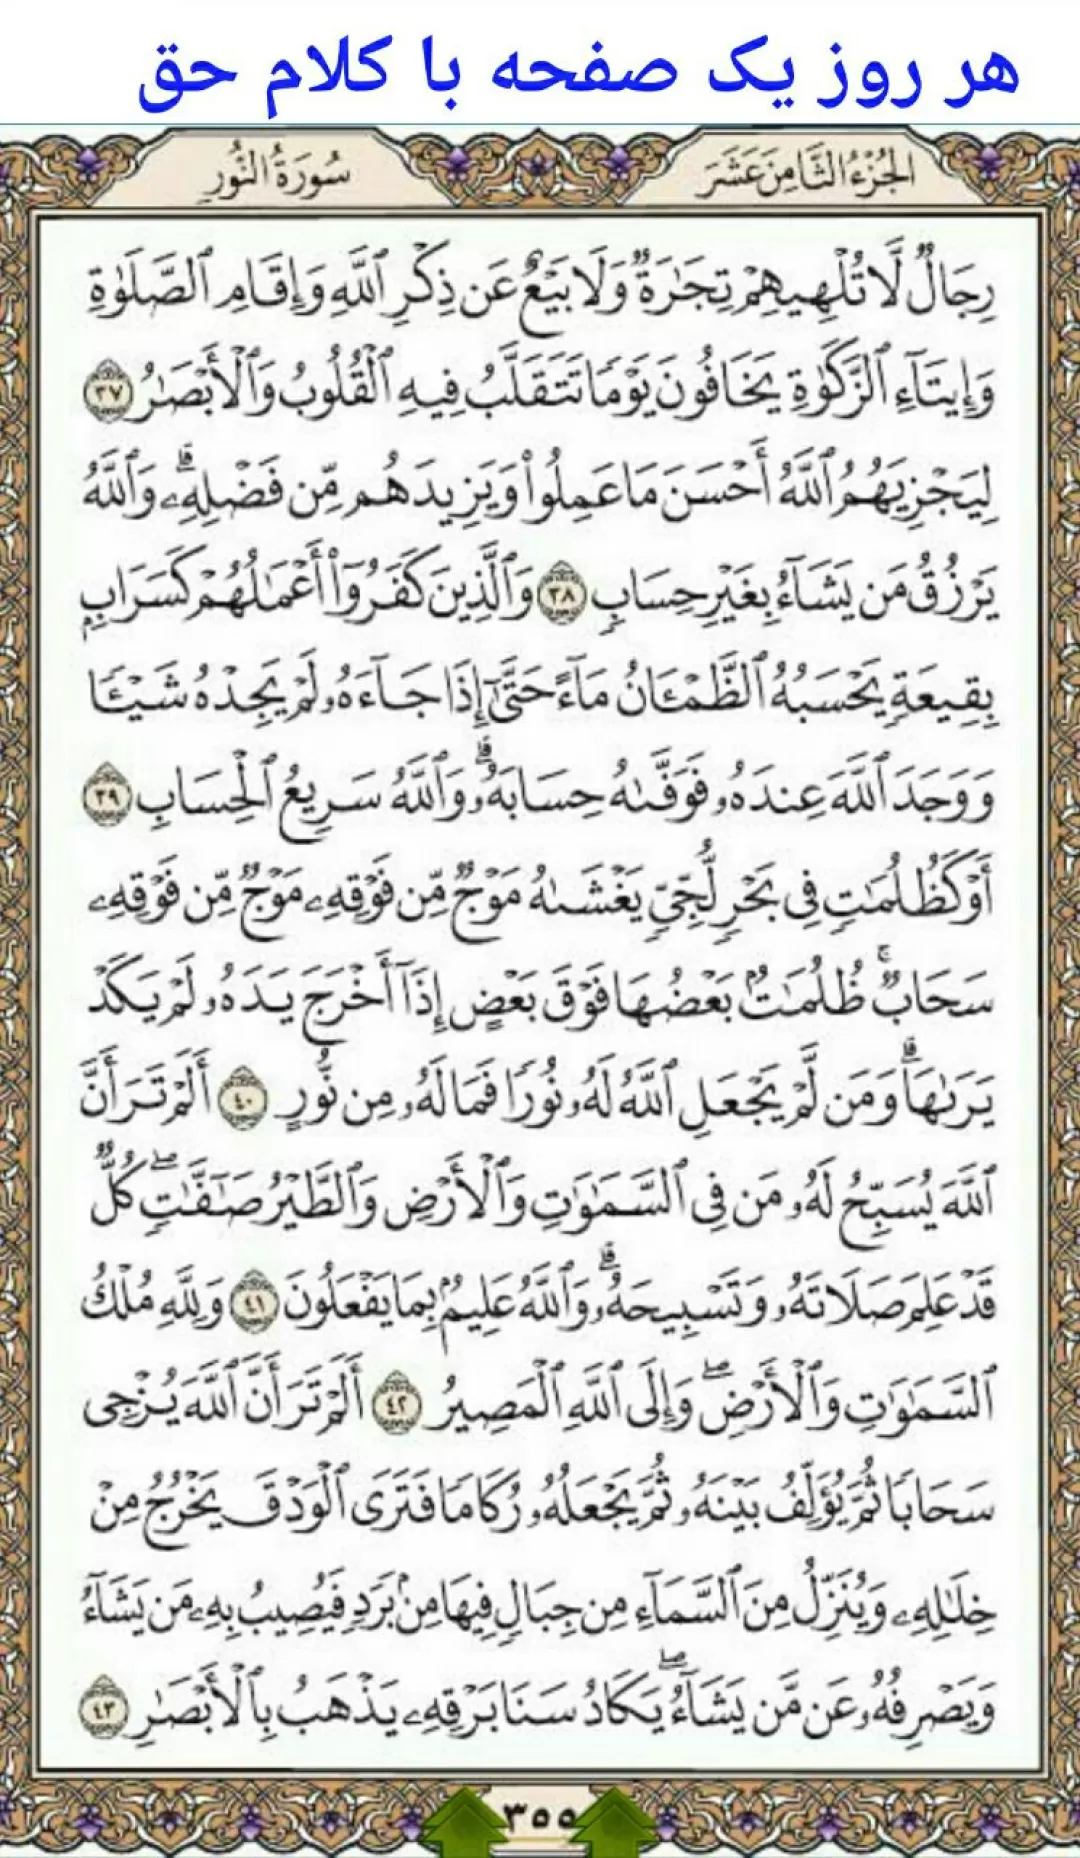 هر روز یک صفحه با کلام حق
الجُزْءُ الثَّامِنَ عَشَرَ
سُورَةُ النُّورِ
رِجَالٌ لَّا تُلْهِيهِمْ تِجَٰرَةٌ وَلَا بَيْعٌ عَن ذِكْرِ ٱللَّهِ وَإِقَامِ ٱلصَّلَوٰةِ
وَإِيتَآءِ ٱلزَّكَوٰةِ يَخَافُونَ يَوْمًا تَتَقَلَّبُ فِيهِ ٱلْقُلُوبُ وَٱلْأَبْصَٰرُ ٣٧
لِيَجْزِيَهُمُ ٱللَّهُ أَحْسَنَ مَا عَمِلُوا۟ وَيَزِيدَهُم مِّن فَضْلِهِۦ ۗ وَٱللَّهُ
يَرْزُقُ مَن يَشَآءُ بِغَيْرِ حِسَابٍ ٣٨ وَٱلَّذِينَ كَفَرُوٓا۟ أَعْمَٰلُهُمْ كَسَرَابٍۭ
بِقِيعَةٍ يَحْسَبُهُ ٱلظَّمْـَٔانُ مَآءً حَتَّىٰٓ إِذَا جَآءَهُۥ لَمْ يَجِدْهُ شَيْـًٔا
وَوَجَدَ ٱللَّهَ عِندَهُۥ فَوَفَّىٰهُ حِسَابَهُۥ ۗ وَٱللَّهُ سَرِيعُ ٱلْحِسَابِ ٣٩
أَوْ كَظُلُمَٰتٍ فِى بَحْرٍ لُّجِّىٍّ يَغْشَىٰهُ مَوْجٌ مِّن فَوْقِهِۦ مَوْجٌ مِّن فَوْقِهِۦ
سَحَابٌ ۚ ظُلُمَٰتٌۢ بَعْضُهَا فَوْقَ بَعْضٍ إِذَآ أَخْرَجَ يَدَهُۥ لَمْ يَكَدْ
يَرَىٰهَا ۗ وَمَن لَّمْ يَجْعَلِ ٱللَّهُ لَهُۥ نُورًا فَمَا لَهُۥ مِن نُّورٍ ٤٠ أَلَمْ تَرَ أَنَّ
ٱللَّهَ يُسَبِّحُ لَهُۥ مَن فِى ٱلسَّمَٰوَٰتِ وَٱلْأَرْضِ وَٱلطَّيْرُ صَٰٓفَّٰتٍ ۖ كُلٌّ
قَدْ عَلِمَ صَلَاتَهُۥ وَتَسْبِيحَهُۥ ۗ وَٱللَّهُ عَلِيمٌۢ بِمَا يَفْعَلُونَ ٤١ وَلِلَّهِ مُلْكُ
ٱلسَّمَٰوَٰتِ وَٱلْأَرْضِ ۖ وَإِلَى ٱللَّهِ ٱلْمَصِيرُ ٤٢ أَلَمْ تَرَ أَنَّ ٱللَّهَ يُزْجِى
سَحَابًا ثُمَّ يُؤَلِّفُ بَيْنَهُۥ ثُمَّ يَجْعَلُهُۥ رُكَامًا فَتَرَى ٱلْوَدْقَ يَخْرُجُ مِنْ
خِلَٰلِهِۦ وَيُنَزِّلُ مِنَ ٱلسَّمَآءِ مِن جِبَالٍ فِيهَا مِنۢ بَرَدٍ فَيُصِيبُ بِهِۦ مَن يَشَآءُ
وَيَصْرِفُهُۥ عَن مَّن يَشَآءُ ۖ يَكَادُ سَنَا بَرْقِهِۦ يَذْهَبُ بِٱلْأَبْصَٰرِ ٤٣
٣٥٥